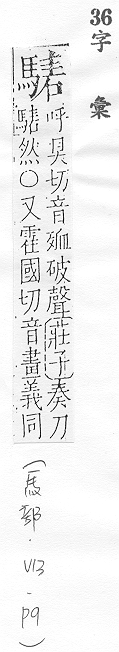 36字彙
騞
呼狊切音殈破聲(莊子)奏刀
騞然○又霍國切音畫義同
(馬部.V13-P9)